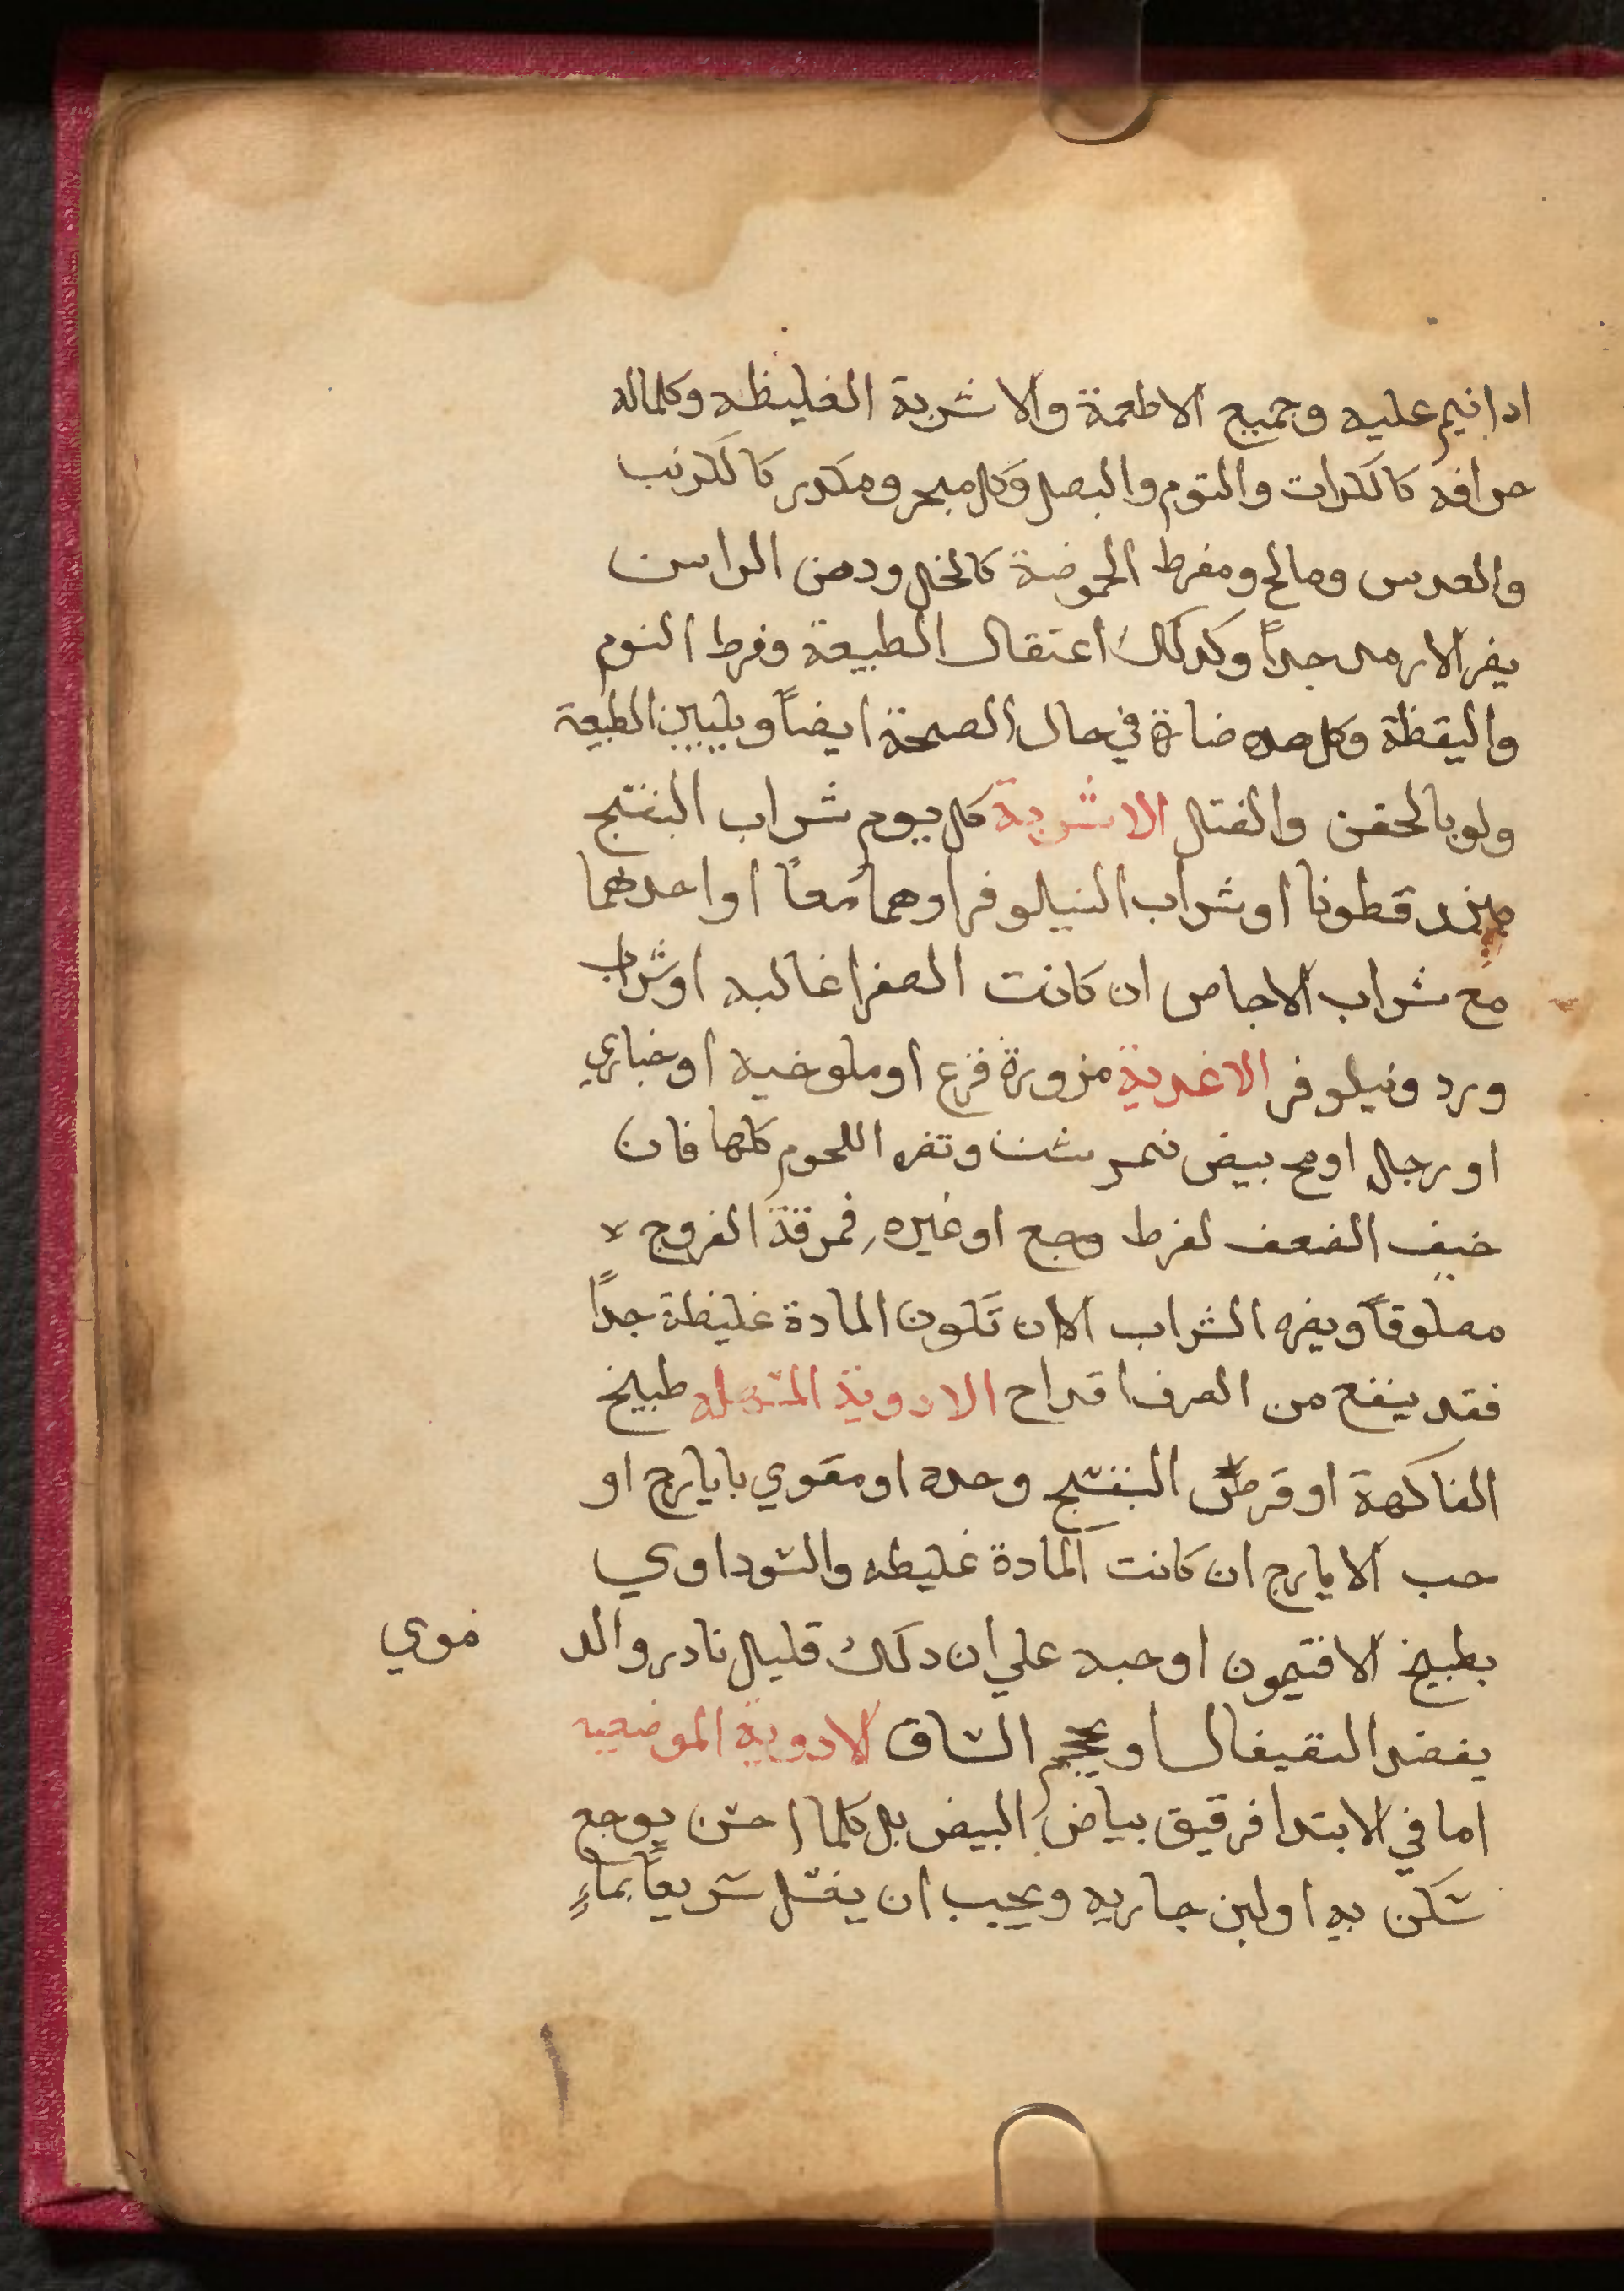 ادا نيم عليه وجميع الاطعمة والاشربة الغليظه وكلماله
حرافه كالكرات والتوم والبصل وكل مبخر ومكدر كالكرنب
والعدس ومالح ومفرط الحموضة كالخل ودهن الراس
يضر الارمد جداً وكدلك اعتقال الطبيعة وفرط النوم
واليقظة وكل هده ضارة في حال الصحة ايضاً ويليين الطبيعة
ولو بالحقن والفتل الاشربة كل يوم شراب البنفسج
ببزر قطونا او شراب النيلوفر اوهما معاً او احدهما
مع شراب الاجاص ان كانت الصفرا غالبه او شراب
ورد ونيلوفر الاغدية مزورة قرع او ملوخيه او خبازي
او رجله او مح بيض نمرشت وتضره اللحوم كلها فان
خيف الضعف لفرط وجع او غيره فمرقة الفروج لا
مصلوقاً ويضره الشراب الا ان تكون المادة غليظة جداً
فقد ينفع من الصرف اقداح الادوية المسهله طبيخ
الفاكهة او قرص البنفسج وحده او مقوي بايارج او
حب الايارج ان كانت المادة غليظه والسوداوي
بطبيخ الافتيمون او حبه علي ان دلك قليل نادر والد موي
يفصد القيفال او يحجم الساق الادوية الموضعيه
اما في الابتدا فرقيق بياض البيض بل كلما احس بوجع
سكن به او لبن جاريه ويجب ان يغسل سريعاً بماءٍ